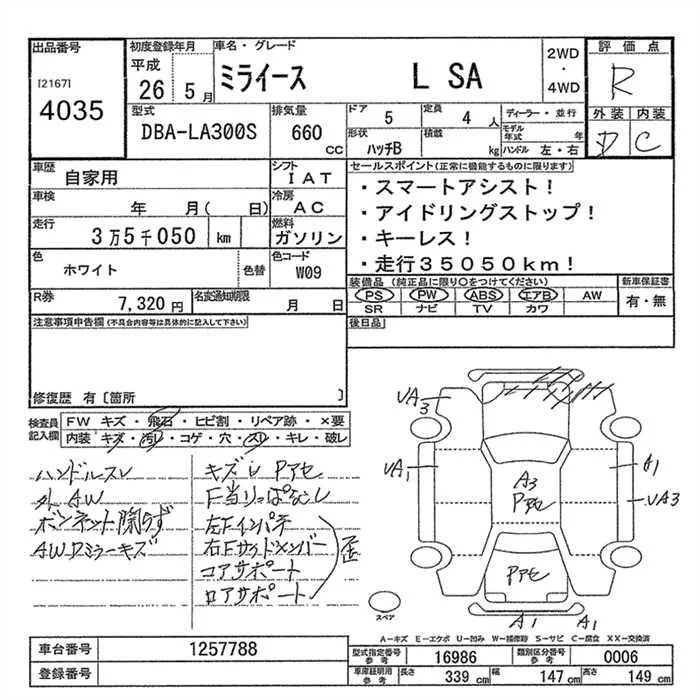 出品番号
[2167]
4035
初度登録年月
平成
26 5月
車名・グレード
ミライース L SA
2WD
・
4WD
評価点
R
外装 内装
D C
型式
DBA-LA300S
排気量
660 CC
ドア 5
定員 4 人
形状 ハッチB
積載 kg
ディーラー・並行
モデル年式 年
ハンドル 左・右
車歴
自家用
シフト
IAT
車検
年 月( 日)
冷房
AC
走行
3万5千050 km
燃料
ガソリン
色
ホワイト
色替
色コード
W09
R券
7,320円
名変通知期限
月 日
セールスポイント(正常に機能するものに限ります)
・スマートアシスト!
・アイドリングストップ!
・キーレス!
・走行35050km!
装備品 (純正品に限り○をつけてください)
PS PW ABS エアB AW
SR ナビ TV カワ
新車保証書
有・無
後日品
注意事項申告欄(不具合内容等は具体的に記入して下さい)
修復歴 有〔箇所 〕
検査員記入欄
FW キズ・飛石・ヒビ割・リペア跡・×要
内装 キズ・汚レ・コゲ・穴・スレ・キレ・破レ
ハンドルスレ
外AW
ボンネット閉らず
AW Dミラーキズ
キズU Pアセ
F当りっぱなし
左Fインパネ
右Fサイドメンバー
コアサポート
ロアサポート
歪
UA3
UA1
A3
Pアセ
A1
UA3
Pアセ
A1
A1
スペア
A-キズ E-エクボ U-凹み W-補修跡 S-サビ C-腐食 XX-交換済
車台番号
1257788
登録番号
型式指定番号
参考
16986
類別区分番号
参考
0006
車庫証明用
参考
長さ 339 cm
幅 147 cm
高さ 149 cm